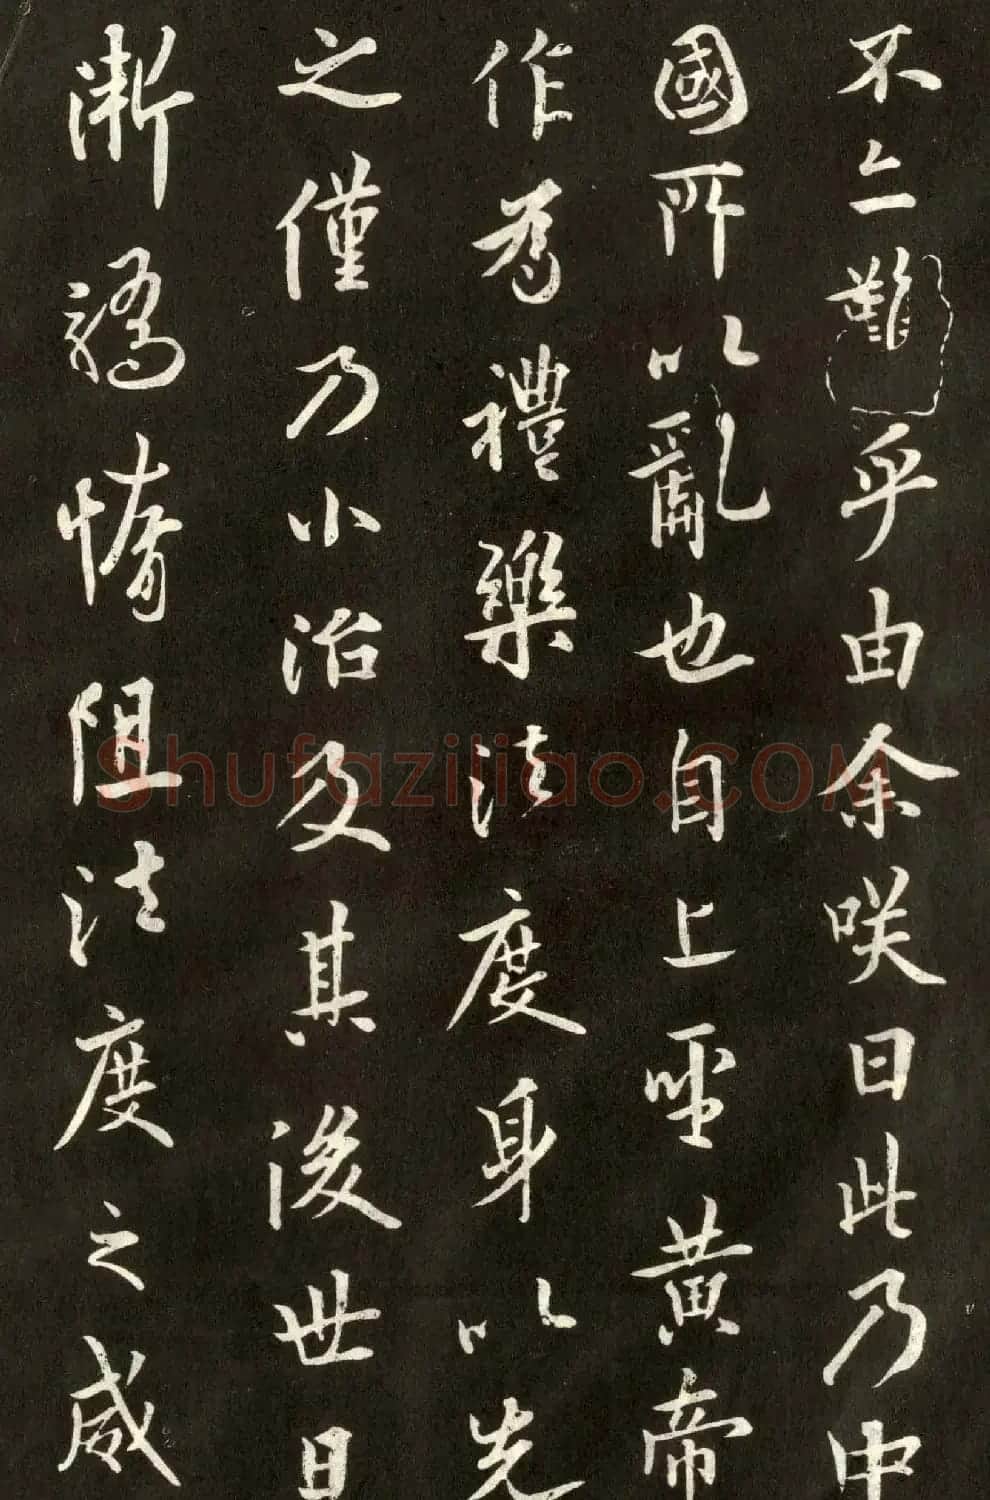 不亦難乎由余咲曰此乃中
國所以亂也自上聖黃帝
作為禮樂法度身以先
之僅乃小治及其後世日
漸驕惰阻法度之威
shufaziliao.com